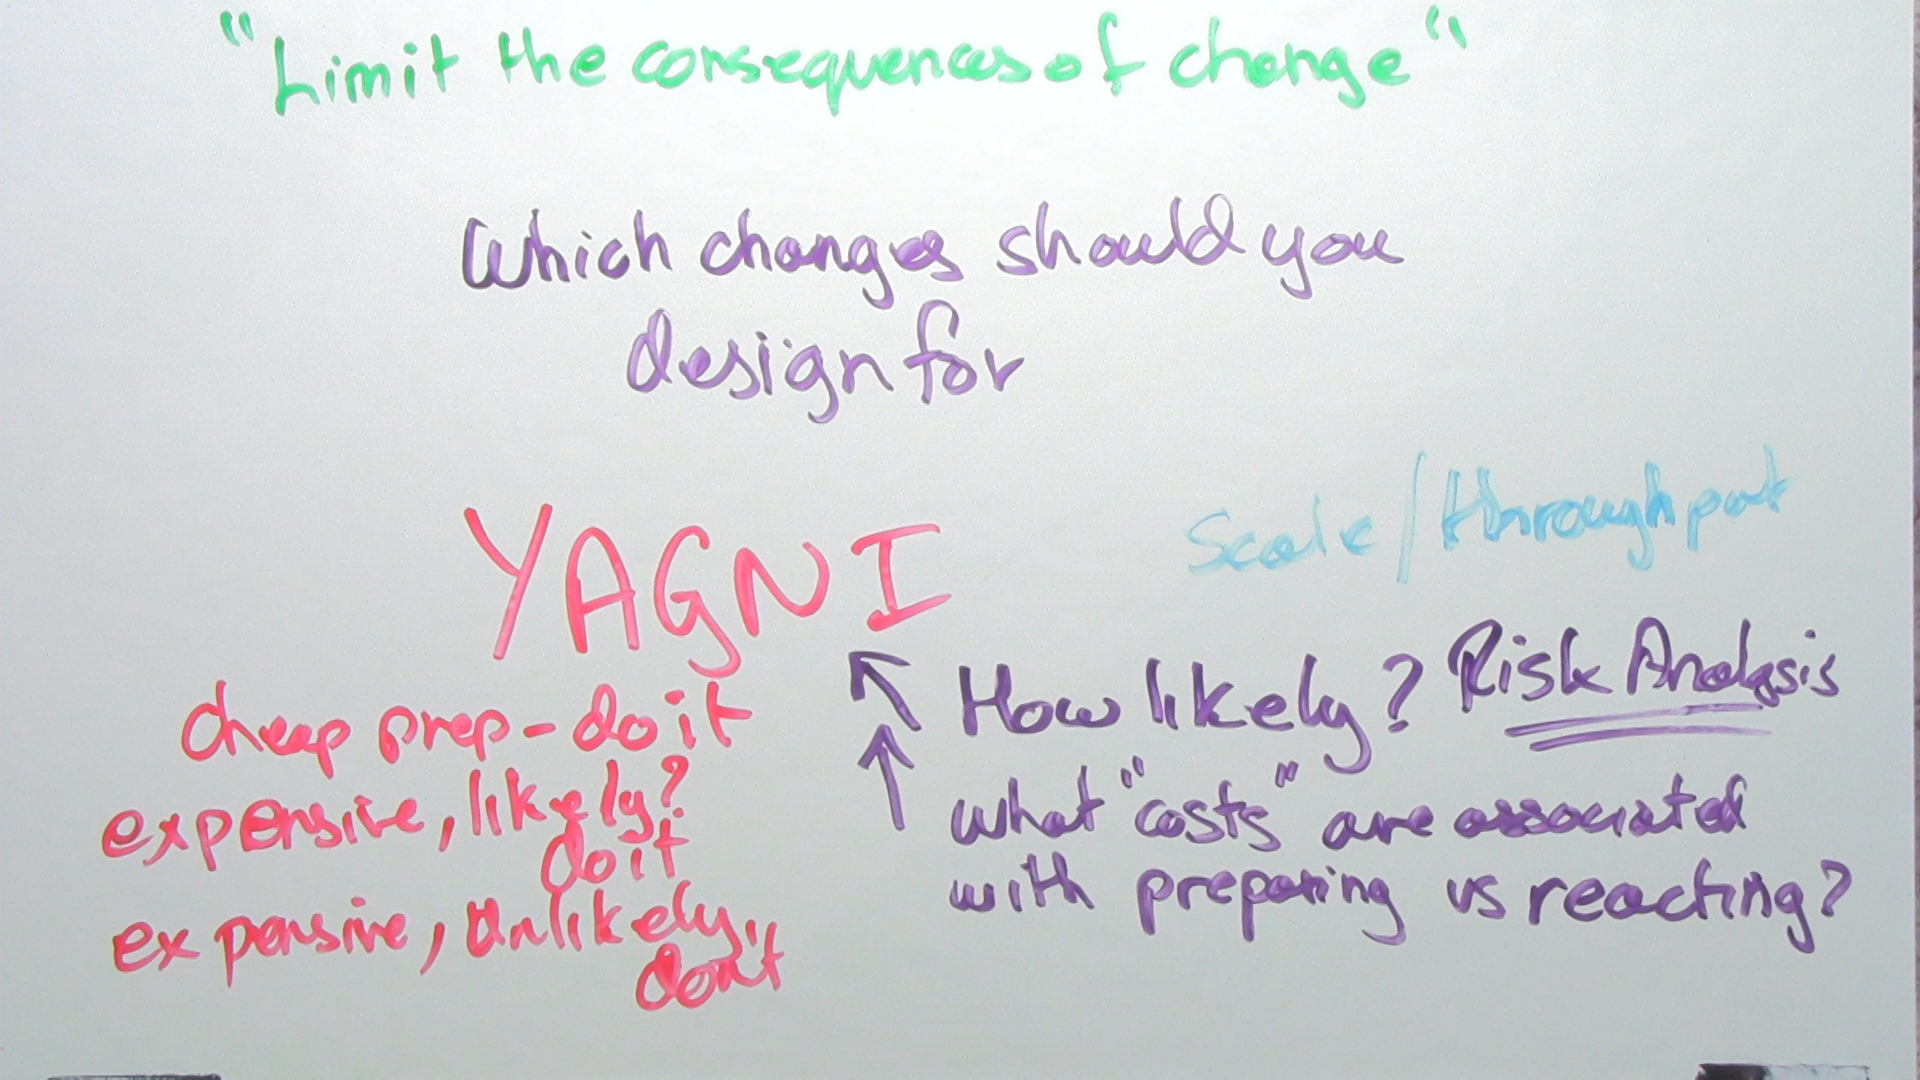 "Limit the consequences of change"
Which changes should you
design for
YAGNI
Scale/throughput
cheap prep - do it
expensive, likely?
do it
expensive, unlikely,
don't
How likely? Risk Analysis
what "costs" are associated
with preparing vs reacting?